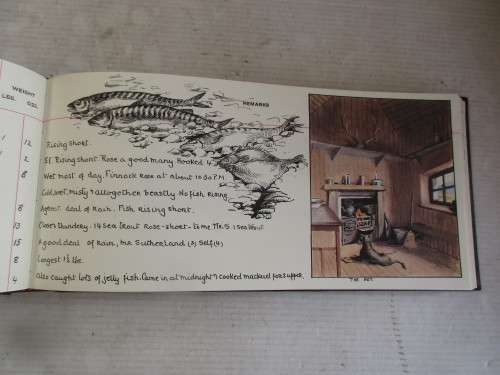 WEIGHT
LBS. OZS.
REMARKS
12
Rising short.
2
Rising short Rose a good many Hooked 4.
8
Wet most of day. Finnock Rose at about 10.30 P.M
Cold, wet, misty & altogether beastly No fish Rising
8
A great deal of Rain. Fish Rising short.
13
14 Sea Trout Rose - short - to me Mr. S 1 Sea Trout
15
A good deal of Rain. Mr Sutherland (3) Self (4)
8
Longest 1½ lbs.
4
Also caught lots of jelly fish. Came in at midnight & cooked mackerel for supper.